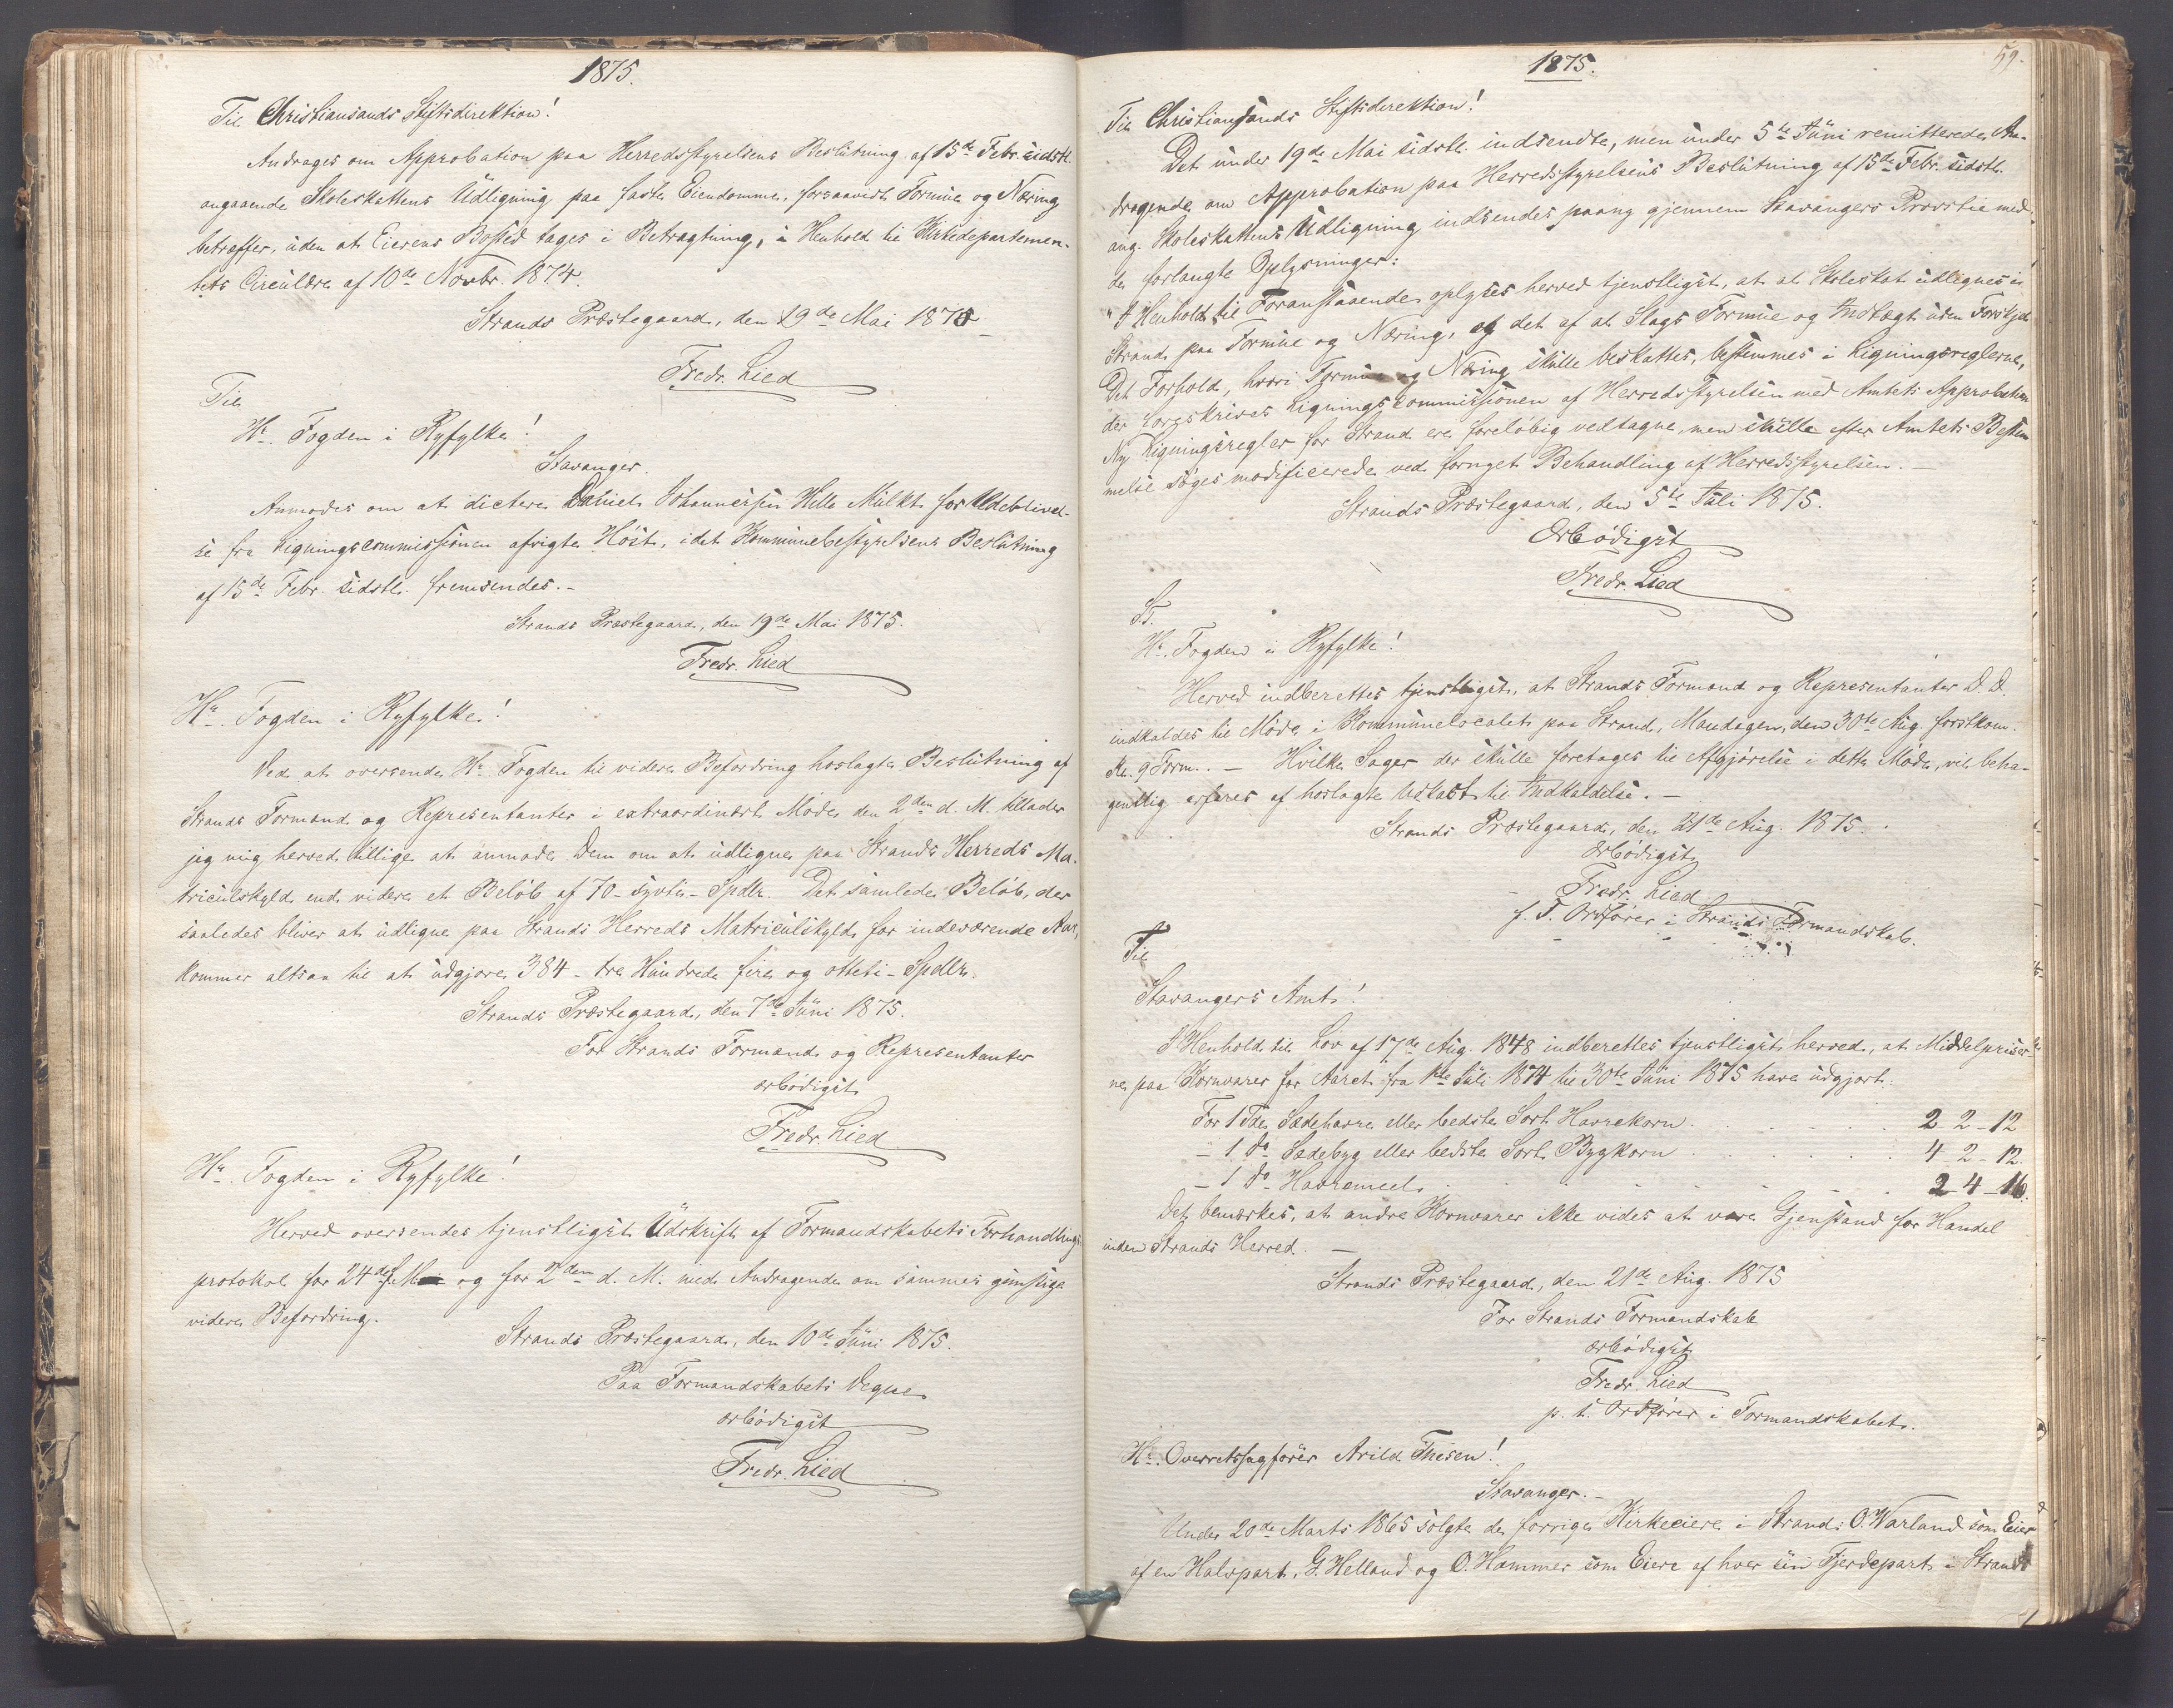 1875.
Til Christiansands Stiftsdirektion!
Andrages om Approbation paa Herredsstyrelsens Beslutning af 15de Febr. sidstl.
angaaende Skoleskattens Udligning paa faste Eiendomme, forsaavidt Formue og Næring
betræffer, uden at Eierens Bosted tages i Betragtning, i Henhold til Kirkedepartemen-
tets Circulære af 10de Novbr. 1874.
Strands Præstegaard, den 19de Mai 1875
Fredr. Lied
Til
Hr. Fogden i Ryfylke!
Stavanger.
Anmodes om at dictere Daniel Johannessen Helle Mulkt for Udeblivel-
se fra Ligningscommissionen afvigte Høst, idet Kommunebestyrelsens Beslutning
af 15de Febr. sidstl. fremsendes.-
Strands Præstegaard, den 19de Mai 1875.
Fredr. Lied
Hr. Fogden i Ryfylke!
Ved at oversende Hr. Fogden til videre Befordring hoslagte Beslutning af
Strands Formænd og Repræsentanter i extraordinært Møde den 2den d. M. tillader
jeg mig herved tillige at anmode Dem om at udligne paa Strands Herreds Ma-
triculskyld end videre et Beløb af 70 - sytti - Spdlr. Det samlede Beløb, der
saaledes bliver at udligne paa Strands Herreds Matriculskyld for indeværende Aar,
kommer altsaa til at udgjøre 384 - tre Hundrede fire og otteti - Spdlr.
Strands Præstegaard, den 7de Juni 1875.
For Strands Formænd og Repræsentanter
ærbødigst
Fredr. Lied
Hr. Fogden i Ryfylke!
Herved oversendes tjenstligst Udskrift af Formandskabets Forhandlings-
protokol for 24de f. M. og for 2den d. M. med Andragende om sammes gunstige
videre Befordring.
Strands Præstegaard, den 10de Juni 1875.
Paa Formandskabets Vegne
ærbødigst
Fredr. Lied
59.
1875.
Til Christiansands Stiftsdirektion!
Det under 19de Mai sidstl. indsendte, men under 5te Juni remitterede An-
dragende om Approbation paa Herredsstyrelsens Beslutning af 15de Febr. sidstl.
ang. Skoleskattens Udligning indsendes paany gjennem Stavangers Provsti med
de forlangte Oplysninger:
"I Henhold til Foranstaaende oplyses herved tjenstligst, at al Skoleskat udlignes i
Strand paa Formue og Næring, og det af al Slags Formue og Indtægt uden Forskjel
Det Forhold, hvori Formue og Næring skulle beskattes, bestemmes i Ligningsreglerne,
der foreskrives Ligningscommissionen af Herredsstyrelsen med Amtets Approbation
Ny Ligningsregler for Strand ere foreløbig vedtagne, men skulle efter Amtets Bestem
melse søges modificerede ved fornyet Behandling af Herredsstyrelsen. -
Strands Præstegaard, den 5te Juli 1875.
Ærbødigst
Fredr. Lied
Hr. Fogden i Ryfylke!
Herved indberettes tjenstligst, at Strands Formænd og Repræsentanter D. D.
indkaldes til Møde i Kommunelocalet paa Strand, Mandagen, den 30te Aug. førstkom.
Kl. 9 Form.. - Hvilke Sager der skulle foretages til Afgjørelse i dette Møde, vil beha-
gentlig erfares af hoslagte Udkast til Indkaldelse. -
Strands Præstegaard, den 21de Aug. 1875.
Ærbødigst
Fredr. Lied
f. T. Ordfører i Strands Formandskab.
Til
Stavangers Amt!
I Henhold til Lov af 17de Aug. 1848 indberettes tjenstligst herved, at Middelpriser-
ne paa Kornvarer for Aaret fra 1ste Juli 1874 til 30te Juni 1875 have udgjort:
For 1 Tde Sædehavre eller bedste Sort Havrekorn . . . . . 2 - 2 - 12
- 1 do Sædebyg eller bedste Sort Bygkorn . . . . . 4 - 2 - 12.
- 1 do Havremeel . . . . . 2 - 4 - 16.
Det bemærkes, at andre Kornvarer ikke vides at være Gjenstand for Handel
inden Strands Herred. -
Strands Præstegaard, den 21de Aug. 1875
For Strands Formandskab
ærbødigst
Fredr. Lied
p. t. Ordfører i Formandskabet.
Hr. Overretssagfører Arild Thesen!
Stavanger. -
Under 20de Marts 1865 solgte de forrige Kirkeeiere i Strand: O. Warland som Eier
af en Halvpart, G. Helland og O. Hammer som Eiere af hver sin Fjerdepart i Strands